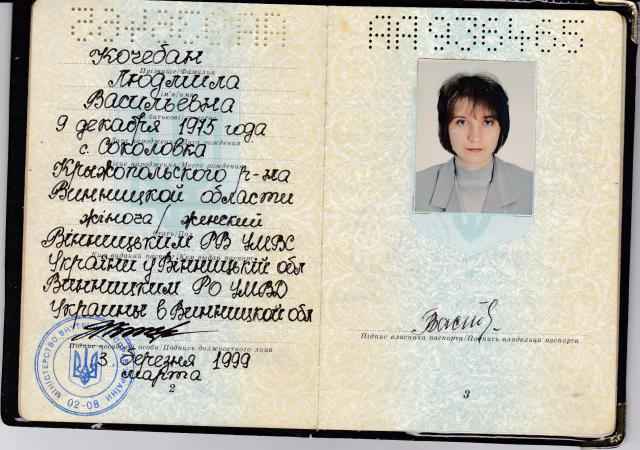 АА 936465
Кочебан
Прізвище/Фамилия
Людмила
ім'я/имя
Васильевна
по батькові
9 декабря 1975 года
с. Соколовка
Місце народження/Место рождения
Крыжопольского р-на
Винницкой области
жіноча/женский
Стать/Пол
Вінницьким РВ УМВС
Ким виданий паспорт/Кем выдан паспорт
України у Вінницькій обл
Винницким РО УМВД
Украины в Винницкой обл
Підпис посадової особи/Подпись должностного лица
3 березня 1999
марта
МІНІСТЕРСТВО ВНУТРІШНІХ СПРАВ УКРАЇНИ
02-08
2
Підпис власника паспорта/Подпись владельца паспорта
3